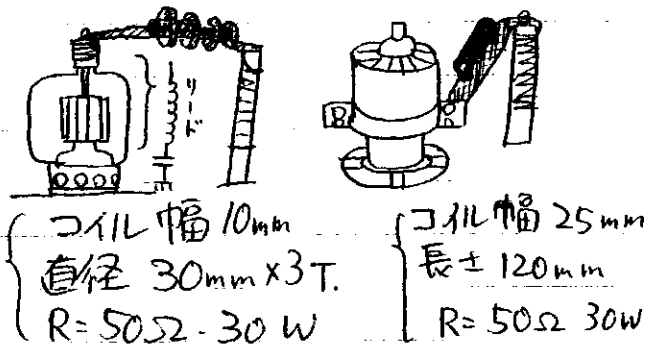 リード
コイル幅 10mm
直径 30mm×3T.
R=50Ω-30W
コイル幅 25mm
長さ 120mm
R=50Ω 30W